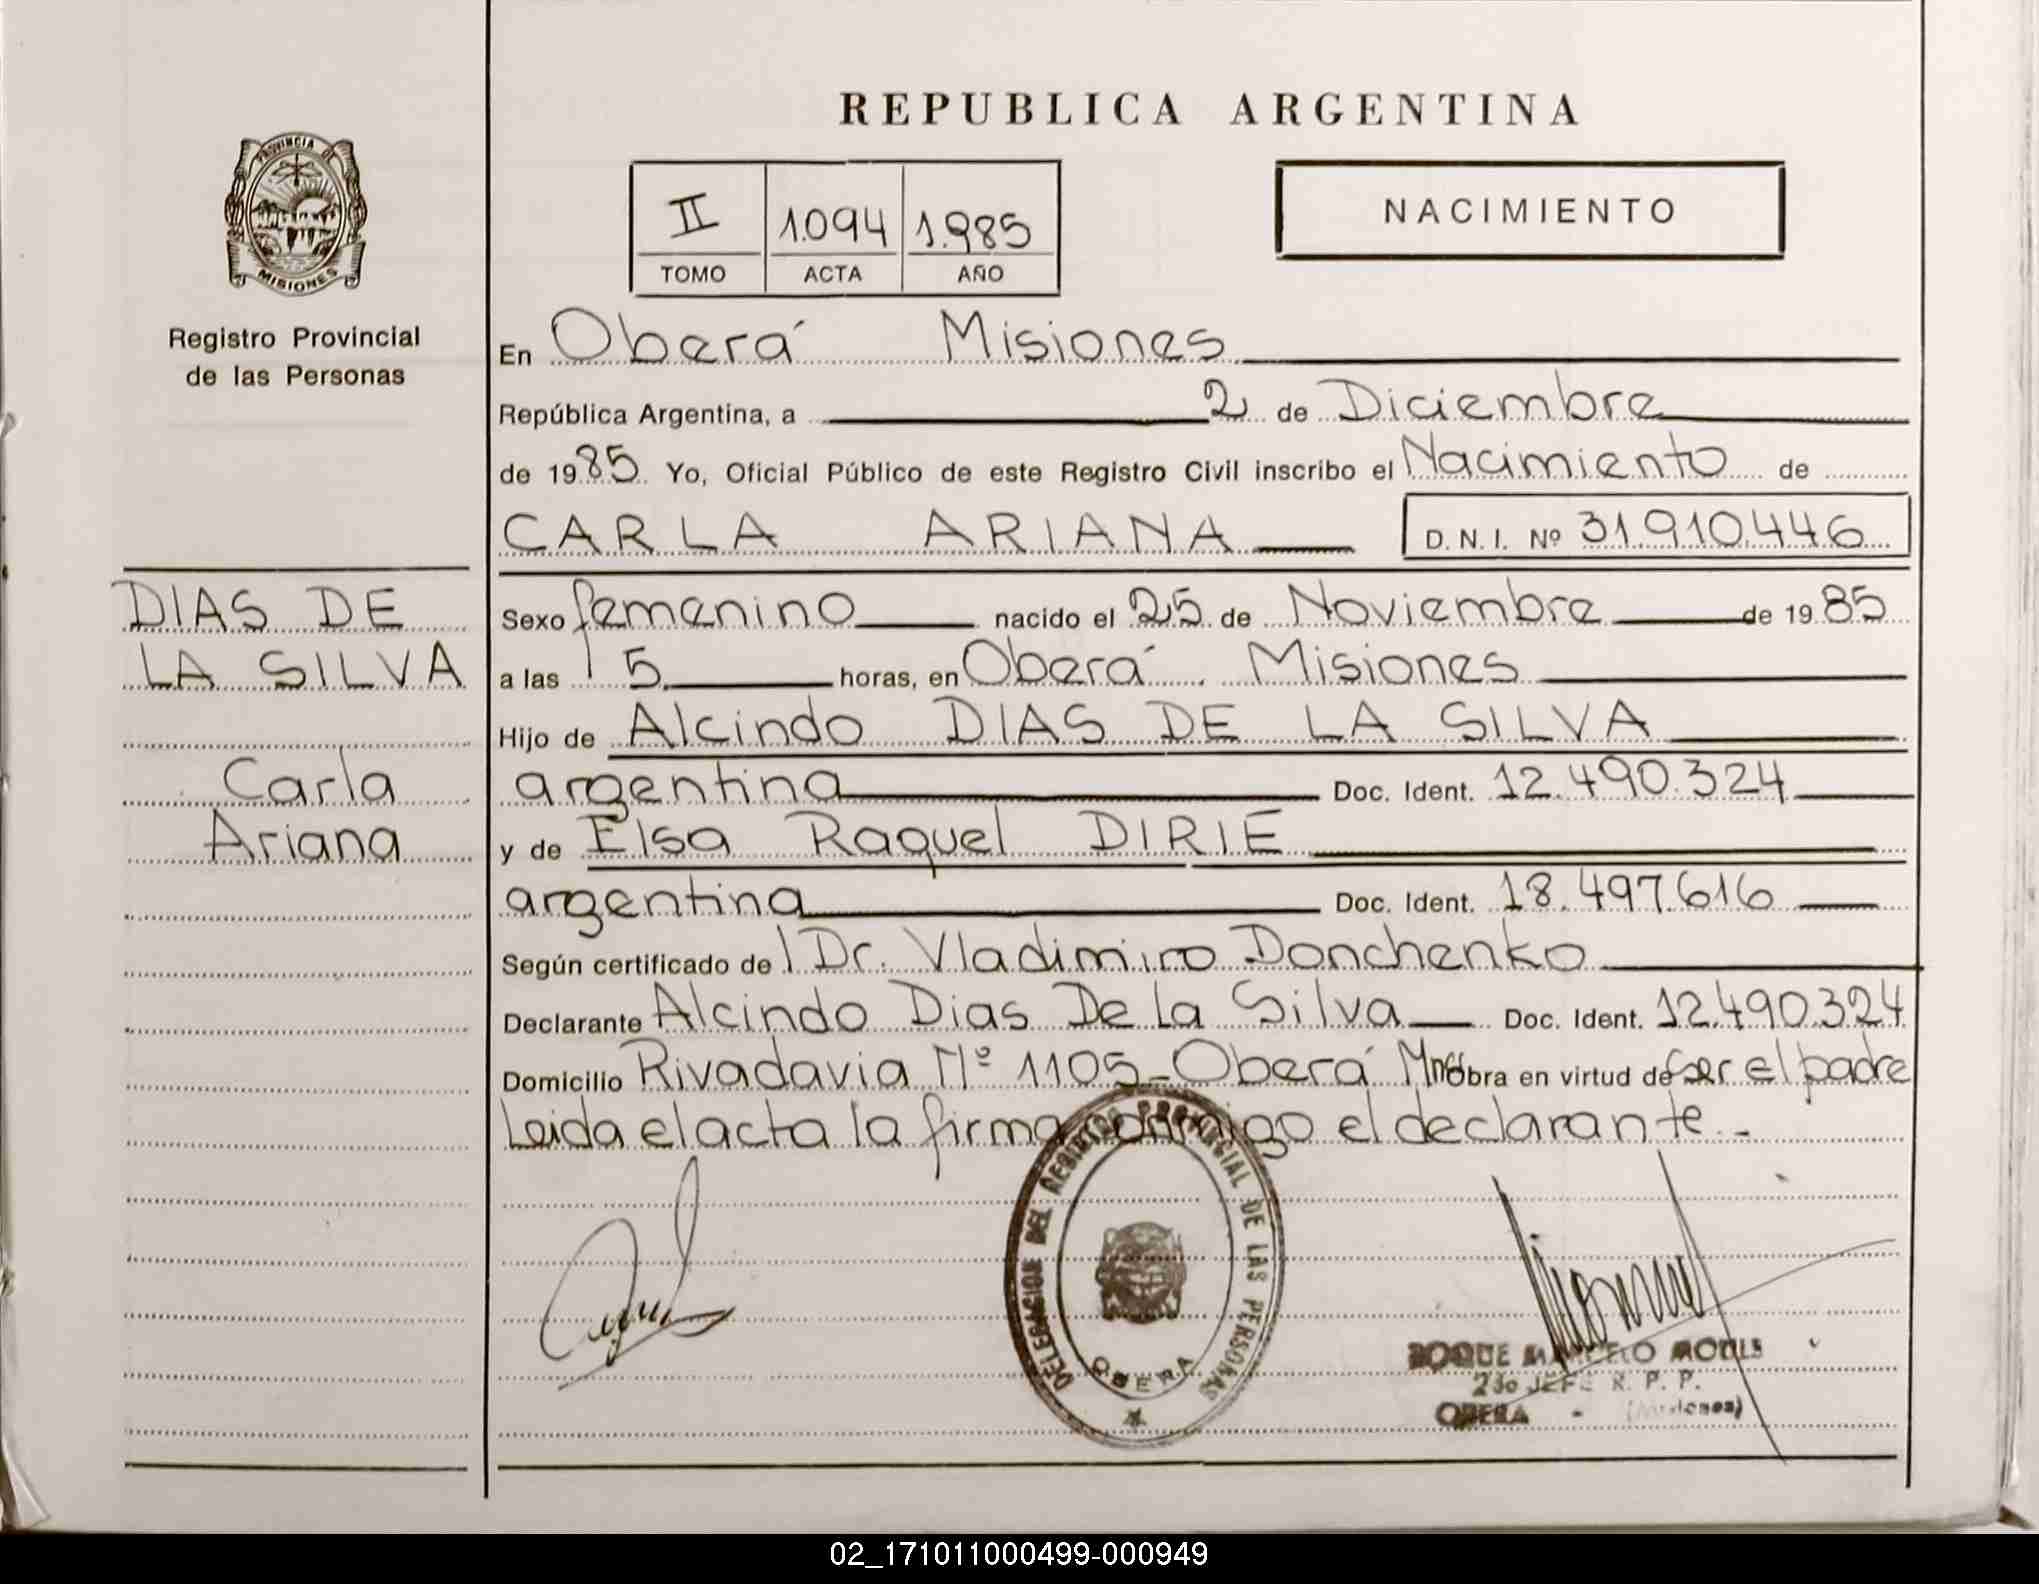 REPUBLICA ARGENTINA
PROVINCIA DE
MISIONES
Registro Provincial
de las Personas
II 1.094 1.985
TOMO ACTA AÑO
NACIMIENTO
En Oberá Misiones
República Argentina, a 2 de Diciembre
de 1985 Yo, Oficial Público de este Registro Civil inscribo el Nacimiento de
CARLA ARIANA D.N.I. Nº 31.910.446
DIAS DE
LA SILVA
Carla
Ariana
Sexo femenino nacido el 25 de Noviembre de 1985
a las 15 horas, en Oberá Misiones
Hijo de Alcindo DIAS DE LA SILVA
argentina Doc. Ident. 12.490.324
y de Elsa Raquel DIRIE
argentina Doc. Ident. 18.497.616
Según certificado de l Dr. Vladimiro Donchenko
Declarante Alcindo Dias De La Silva Doc. Ident. 12.490.324
Domicilio Rivadavia Nº 1105-Oberá Mnes obra en virtud de ser el padre
Leida el acta la firma conmigo el declarante.-
DELEGACION DEL REGISTRO PROVINCIAL DE LAS PERSONAS
OBERA
ROQUE MARCELO
2do JEFE R. P. P.
OBERA - (Misiones)
02_171011000499-000949